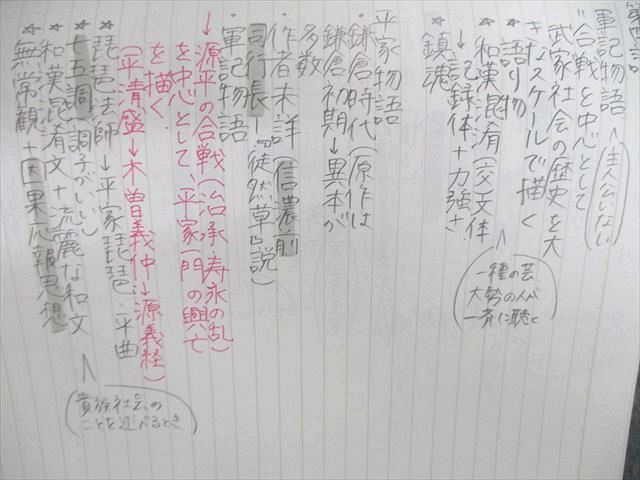 軍記物語 ← 主人公いない
"合戦を中心として
武家社会の歴史を大
きなスケールで描く
☆語り物
☆和漢混淆(交)文体
→記録体+力強さ
☆鎮魂
一種の芸
大勢の人が
一斉に聴く
平家物語
・鎌倉時代(原作は
鎌倉初期→異本が
多数
・作者未詳(信濃前
司行長―『徒然草』説)
・軍記物語
→源平の合戦(治承・寿永の乱)
を中心として、平家一門の興亡
を描く
(平清盛→木曽義仲→源義経)
☆琵琶法師→平家琵琶・平曲
☆七五調(調子がいい)
☆和漢混淆文+流麗な和文
☆無常観+因果応報思想
貴族社会の
ことを述べるとき